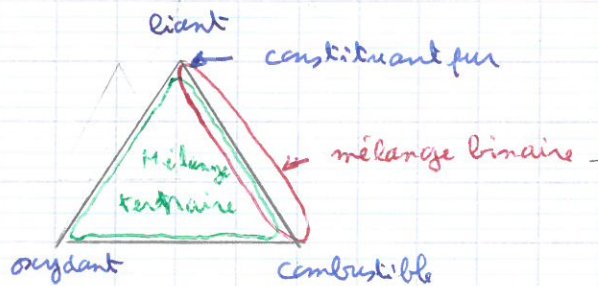 liant
constituant pur
mélange binaire
Mélange
tertiaire
oxydant
combustible